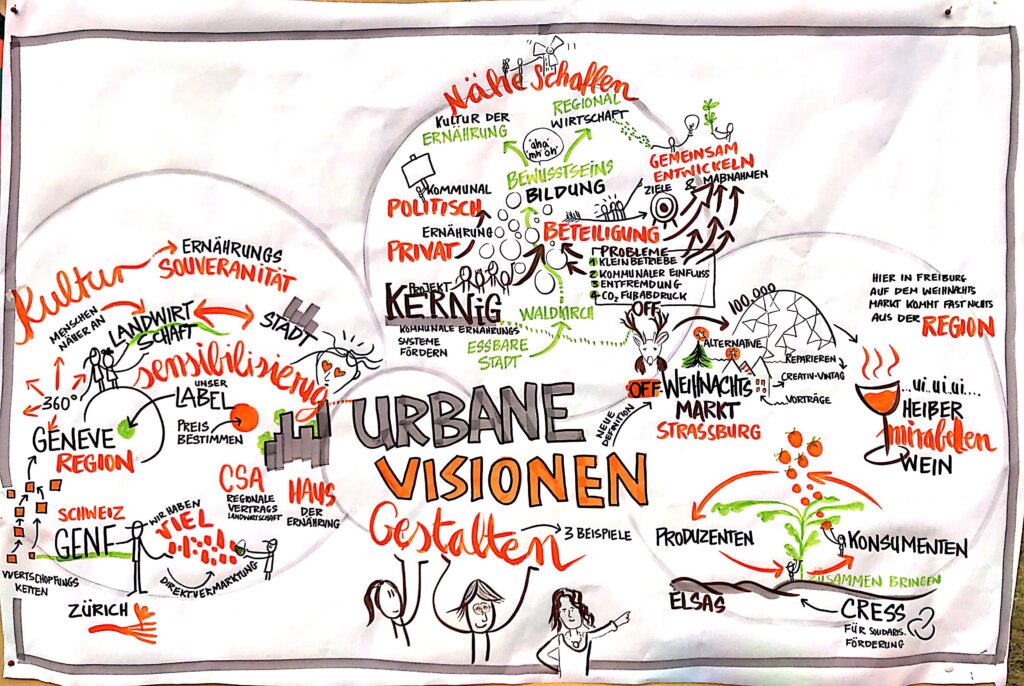 Nähe Schaffen
KULTUR DER
ERNÄHRUNG
REGIONAL
WIRTSCHAFT
'aha'
'mh' 'oh'
BEWUSSTSEINS
BILDUNG
GEMEINSAM
ENTWICKELN
ZIELE & MAßNAHMEN
KOMMUNAL
POLITISCH
ERNÄHRUNG
PRIVAT
BETEILIGUNG
PROBLEME
1 KLEINBETRIEBE
2 KOMMUNALER EINFLUSS
3 ENTFREMDUNG
4 CO2 FUßABDRUCK
PROJEKT
KERNiG
KOMMUNALE ERNÄHRUNGS
SYSTEME
FÖRDERN
WALDKIRCH
ESSBARE
STADT
Kultur
ERNÄHRUNGS
SOUVERANITÄT
MENSCHEN
NÄHER AN
LANDWIRT
SCHAFT
STADT
sensibilisierung
360°
UNSER
LABEL
PREIS
BESTIMMEN
GENÈVE
REGION
CSA
REGIONALE
VERTRAGS
LANDWIRTSCHAFT
HAUS
DER
ERNÄHRUNG
SCHWEIZ
GENF
WIR HABEN
VIEL
DIREKTVERMARKTUNG
WERTSCHÖPFUNGS
KETTEN
ZÜRICH
URBANE
VISIONEN
Gestalten
3 BEISPIELE
OFF
100.000
ALTERNATIVE
REPARIEREN
CREATIV-VINTAG
VORTRÄGE
NEUE
DEFINITION
OFF WEIHNACHTS
MARKT
STRASSBURG
HIER IN FREIBURG
AUF DEM WEIHNACHTS
MARKT KOMMT FAST NICHTS
AUS DER REGION
...ui..ui..ui...
HEIßER
mirabellen
WEIN
PRODUZENTEN
KONSUMENTEN
ZUSAMMEN BRINGEN
ELSAS
CRESS
FÜR SOLIDARIS.
FÖRDERUNG